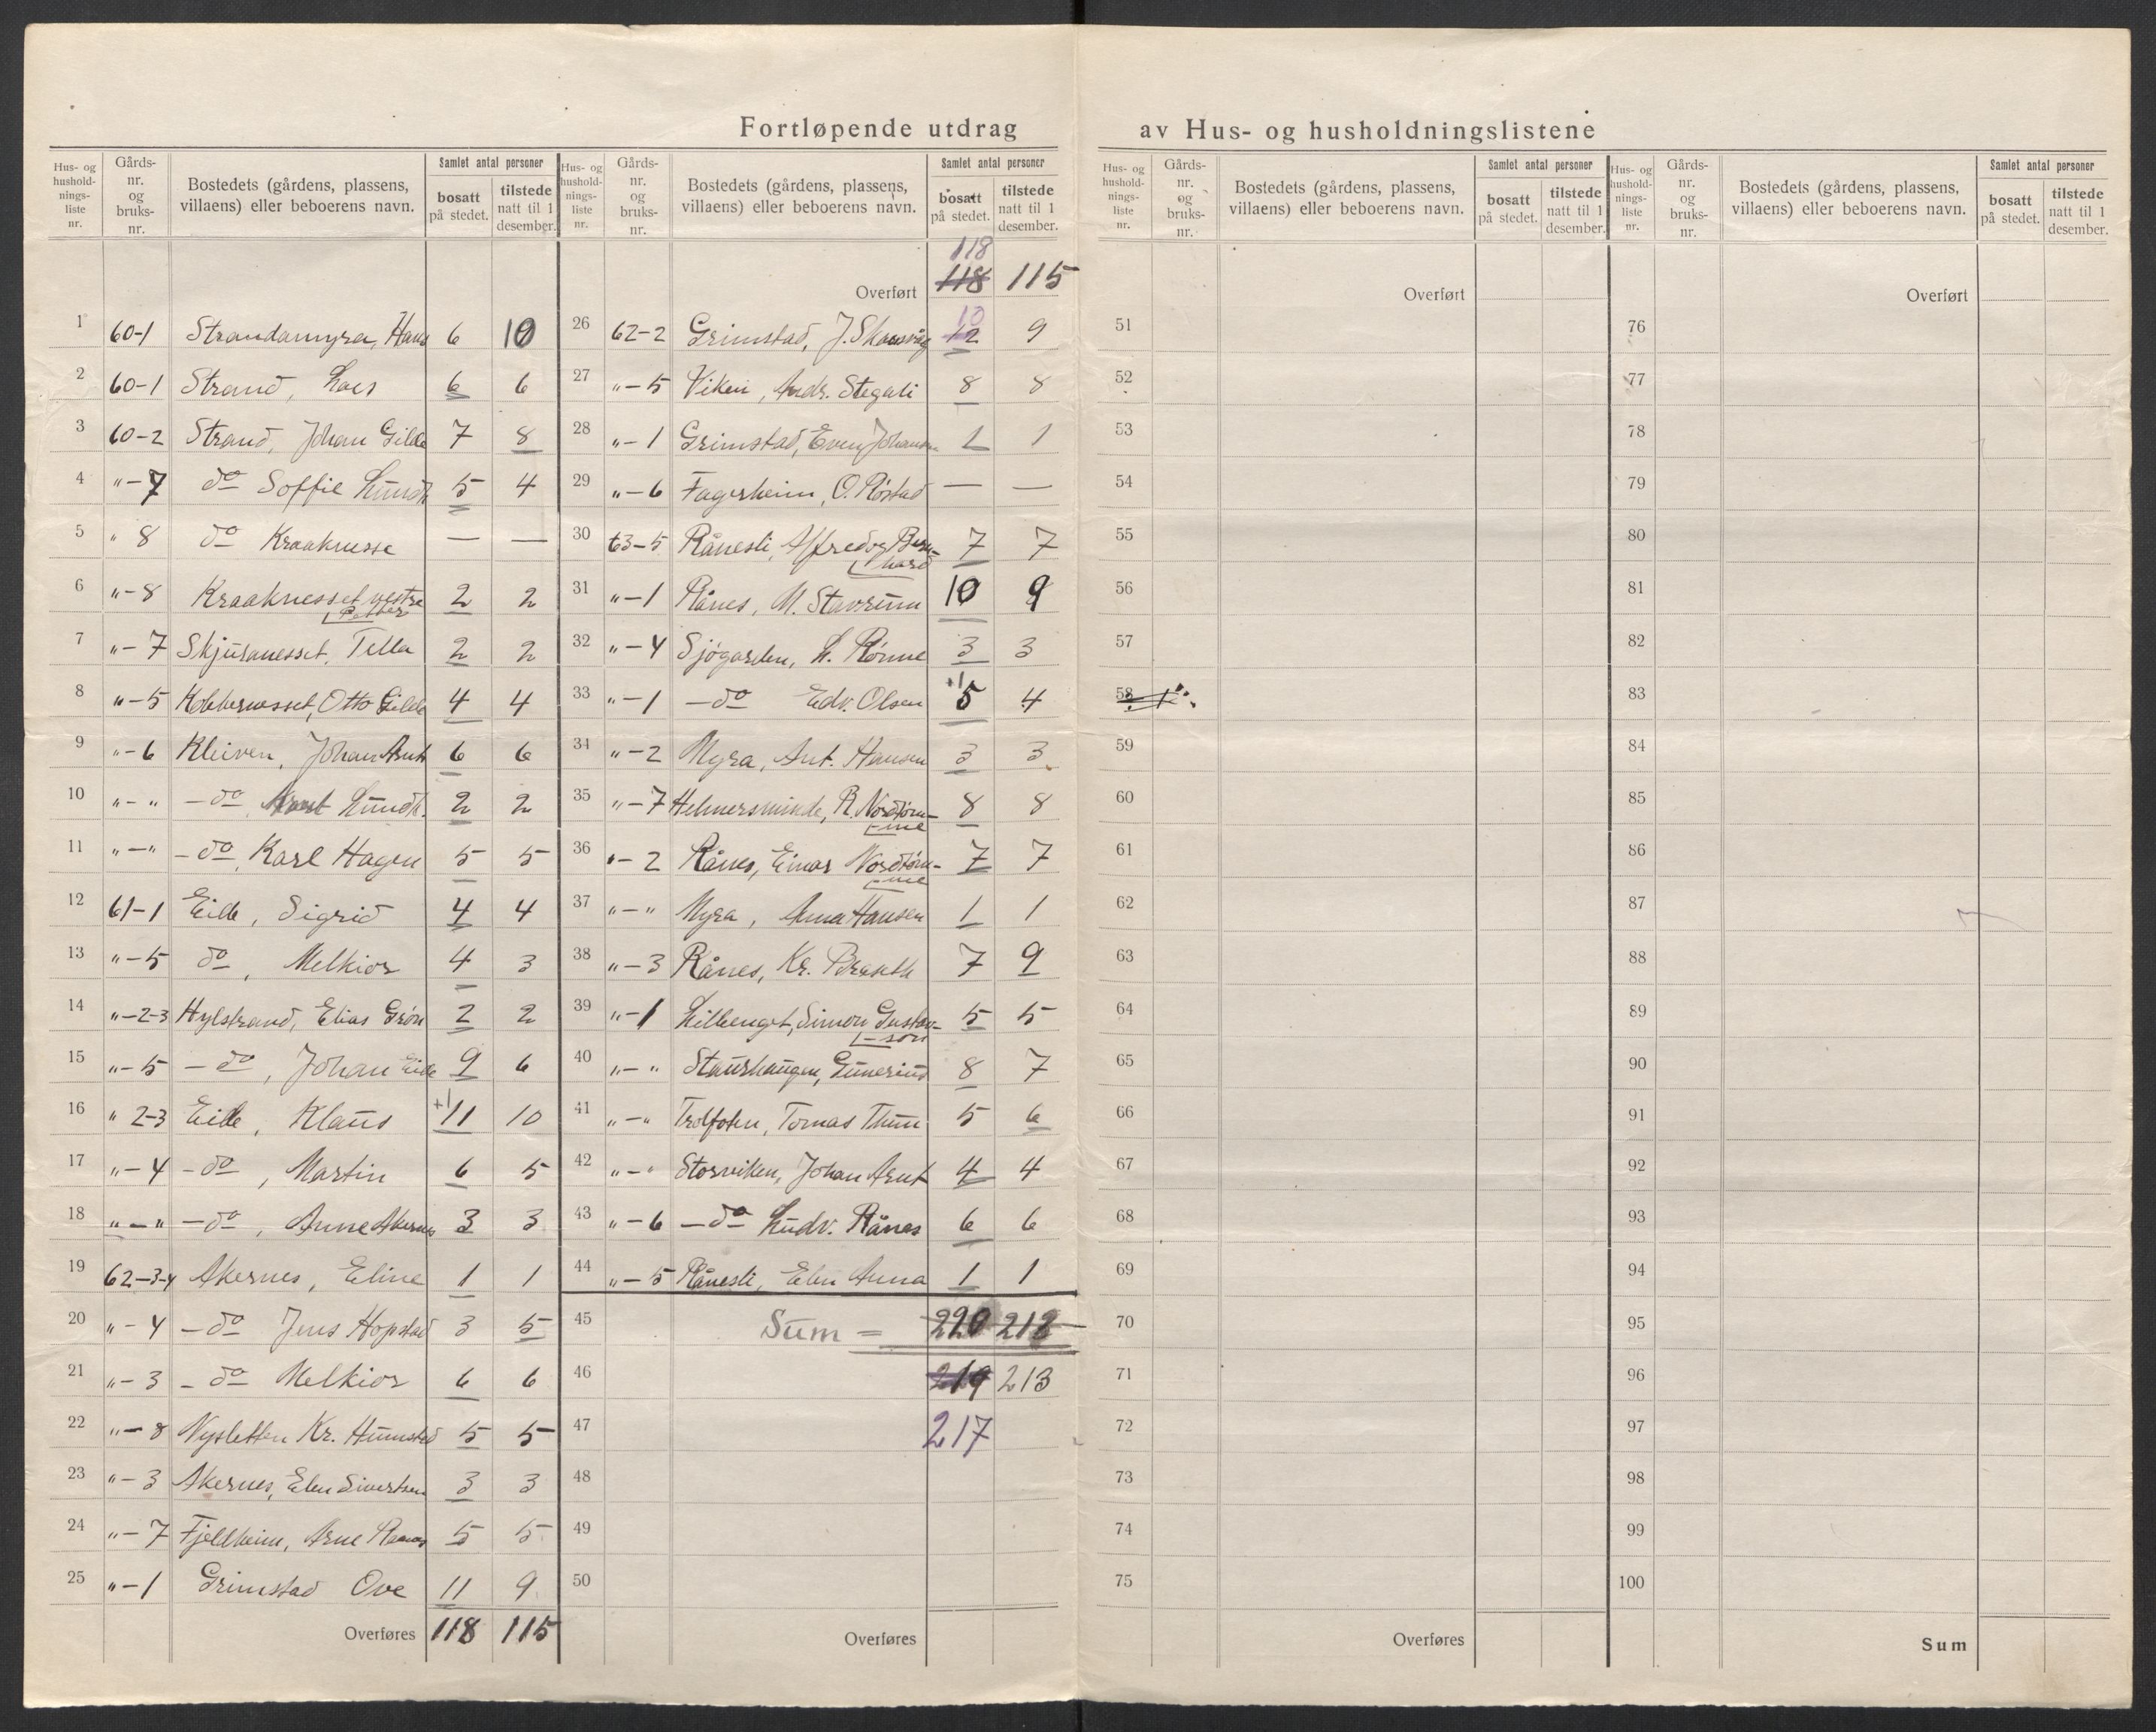 Fortløpende utdrag av Hus- og husholdningslistene
Hus- og hushold- nings- liste nr. | Gårds- nr. og bruks- nr. | Bostedets (gårdens, plassens, villaens) eller beboerens navn. | Samlet antal personer | bosatt på stedet. | tilstede natt til 1 desember.
1 60-1 Strandamyra, Hans 6 10
2 60-1 Strand, Lars 6 6
3 60-2 Strand, Johan Gilde 7 8
4 "-7 do Soffie Lundt 5 4
5 " 8 do Kraaknesse — —
6 "-8 Kraaknesset vestre Petter 2 2
7 "-7 Skjuranesset, Tella 2 2
8 "-5 Kobbernesset, Otto Gilde 4 4
9 "-6 Kleiven, Johan Arnt 6 6
10 "-" -do Arnt Lundt. 2 2
11 "-" -do, Karl Hagen 5 5
12 61-1 Eide, Sigrid 4 4
13 "-5 do, Melkior 4 3
14 "-2-3 Hylstrand, Elias Grön 2 2
15 "-5 -do, Johan Eide 9 6
16 " 2-3 Eide, Klaus +1 11 10
17 "-4 -do, Martin 6 5
18 "-" -do, Anne Akernes 3 3
19 62-3-4 Akernes, Eline 1 1
20 "-4 -do Jens Hopstad 3 5
21 "-3 -do Melkior 6 6
22 "-8 Nysletten Kr. Humstad 5 5
23 "-3 Akernes, Elen Sivertsen 3 3
24 "-7 Fjeldheim, Arne 5 5
25 "-1 Grimstad Ove 11 9
Overføres 118 115
Hus- og hushold- nings- liste nr. | Gårds- nr. og bruks- nr. | Bostedets (gårdens, plassens, villaens) eller beboerens navn. | Samlet antal personer | bosatt på stedet. | tilstede natt til 1 desember.
118
Overført 118 115
10
26 62-2 Grimstad, J. Skonsvåg 12 9
27 "-5 Viken, Andr. Stegali 8 8
28 "-1 Grimstad, Even Johansen 1 1
29 "-6 Fagerheim, O. Röstad — —
30 63-5 Rånesli, Alfred og Bern-hard 7 7
31 "-1 Rånes, M. Stavrum 10 9
32 "-4 Sjögarden, L. Rönne 3 3
33 "-1 -do Edv. Olsen +1 5 4
34 "-2 Myra, Ant. Hansen 3 3
35 "-7 Helmersminde, R. Nordtöm-me 8 8
36 "-2 Rånes, Einar Nordtöm-me 7 7
37 "-" Myra, Anna Hansen 1 1
38 "-3 Rånes, Kr. 7 9
39 "-1 Lilleenget, Simon Gustav-son 5 5
40 "-" Staurhaugen, Gunerius 8 7
41 "-" Trolfoten, Tomas Thun 5 6
42 "-" Storviken, Johan Arnt 4 4
43 "-6 -do Ludv. Rånes 6 6
44 "-5 Rånesli, Elen Anna 1 1
45 Sum = 220 212
46 219 213
47 217
48
49
50
Overføres
Hus- og hushold- nings- liste nr. | Gårds- nr. og bruks- nr. | Bostedets (gårdens, plassens, villaens) eller beboerens navn. | Samlet antal personer | bosatt på stedet. | tilstede natt til 1 desember.
Overført
51
52
53
54
55
56
57
58
59
60
61
62
63
64
65
66
67
68
69
70
71
72
73
74
75
Overføres
Hus- og hushold- nings- liste nr. | Gårds- nr. og bruks- nr. | Bostedets (gårdens, plassens, villaens) eller beboerens navn. | Samlet antal personer | bosatt på stedet. | tilstede natt til 1 desember.
Overført
76
77
78
79
80
81
82
83
84
85
86
87
88
89
90
91
92
93
94
95
96
97
98
99
100
Sum